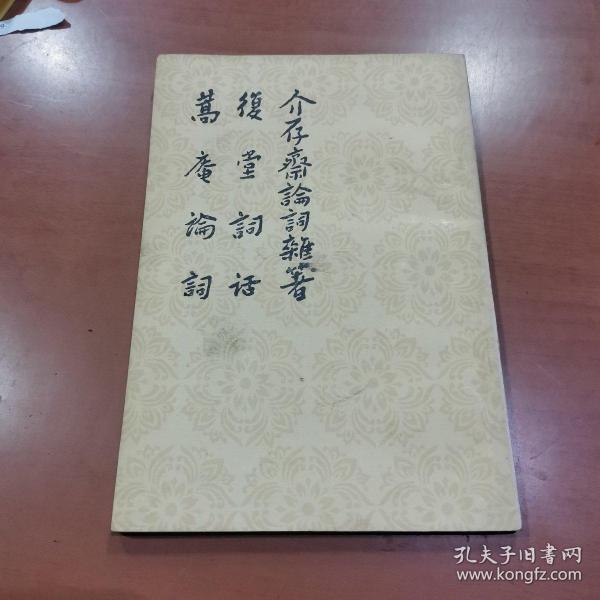 介存齋論詞雜著
復堂詞話
蒿庵論詞
孔夫子旧书网
www.kongfz.com